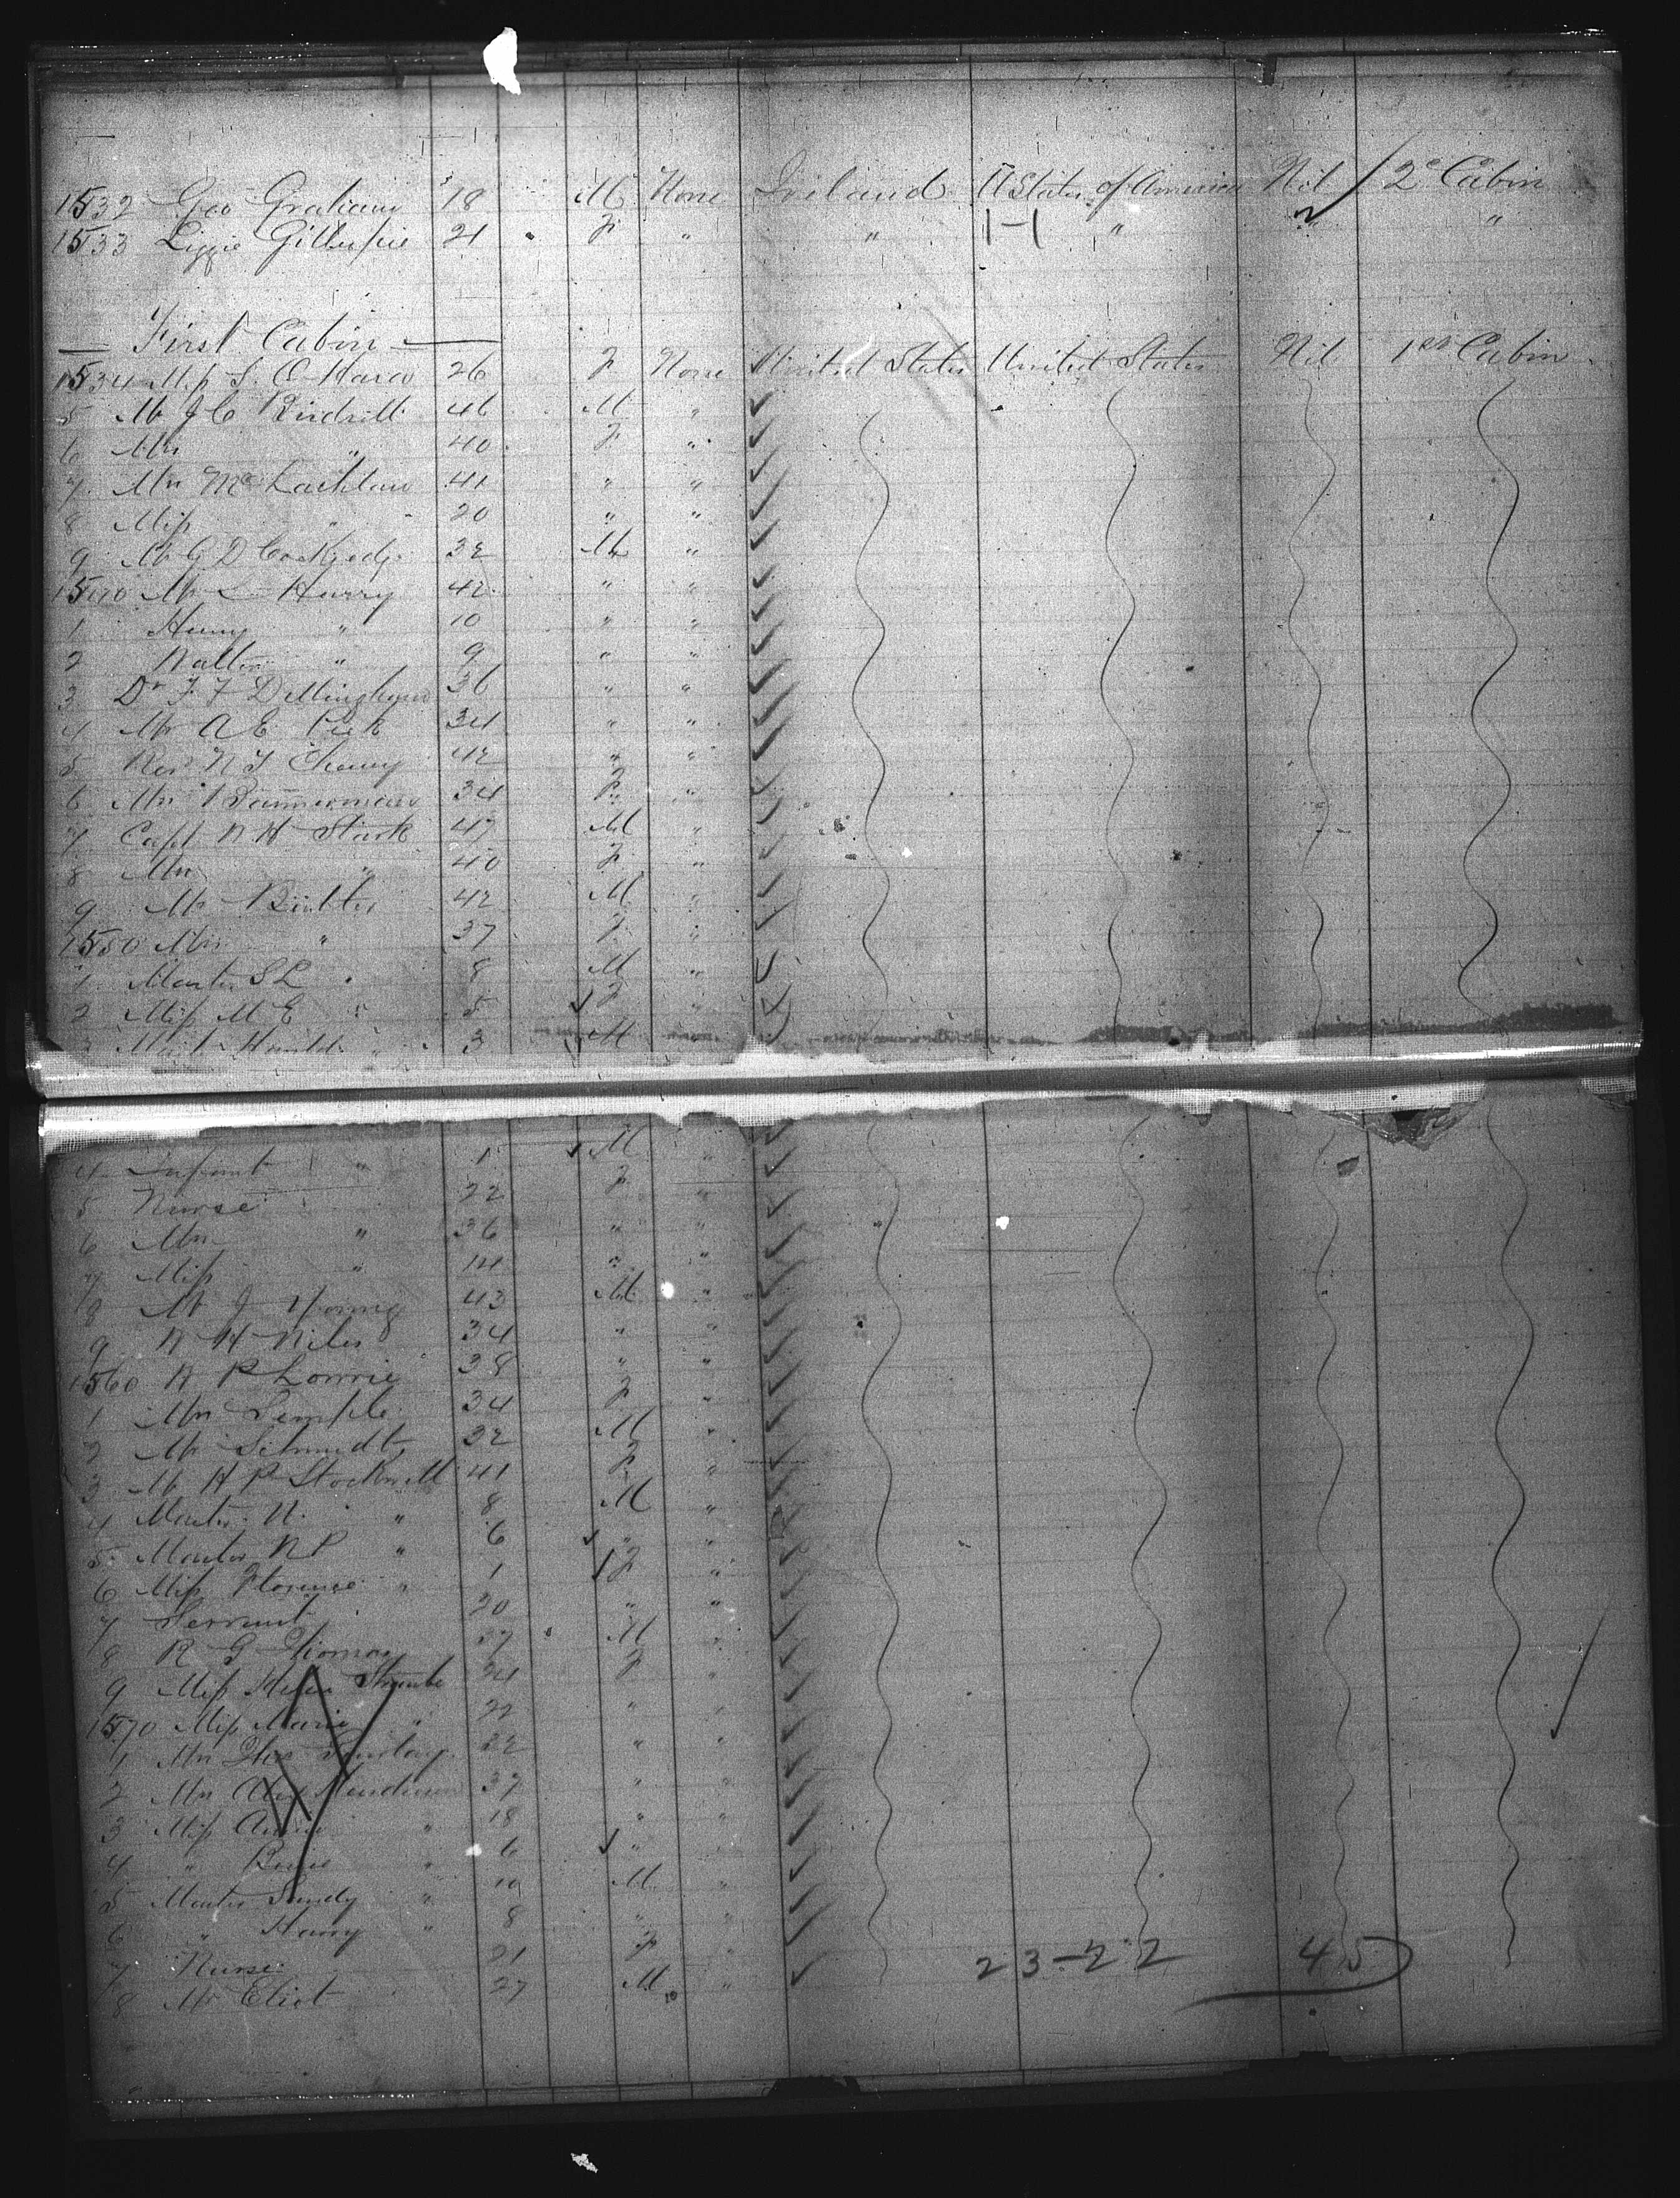 1532 Geo Graham 18 M None Ireland U States of America Nil 2e Cabin
1533 Lizzie Gillespie 21 F " " 1-1 " " "
First Cabin
1534 Miss S. O'Hara 26 F None United States United States Nil 1st Cabin
5 Mr J C 46 M "
6 Mrs " 40 F "
7 Mrs McLachlan 41 " "
8 Miss " 20 " "
9 Mr G D 32 M "
1540 Mr L Harry 42 " "
1 Henry " 10 " "
2 Walter " 9 " "
3 Dr F F Dillingham 36 " "
4 Mr A E Peck 34 " "
5 Rev N T 42 " "
6 Mrs 34 F "
7 Capt N H Stark 47 M "
8 Mrs " 40 F "
9 Mr 42 M "
1550 Mrs " 37 F "
1 Master S L " 8 M "
2 Miss M E " 5 F "
3 Mast Harold " 3 M "
4 Infant " 1 M "
5 Nurse 22 F "
6 Mrs " 36 " "
7 Miss " 14 " "
8 Mr J Young 43 M "
9 N H Niles 34 " "
1560 N P Lowrie 38 " "
1 Mrs Temple 34 F "
2 Mr Schmidt 32 M "
3 Mr H P Stockwell 41 F "
4 Master N. " 8 M "
5 Master N P " 6 " "
6 Miss Florence " 1 F "
7 Servant 20 " "
8 R G Thomas 37 M "
9 Miss 24 F "
1570 Miss Marie " 22 " "
1 Mrs 32 " "
2 Mrs Alex Henderson 37 " "
3 Miss Annie " 18 " "
4 " " 6 " "
5 Master Sandy " 10 M "
6 " Harry " 8 " "
7 Nurse 21 F "
8 Mr Eliot 27 M "
23-22 45